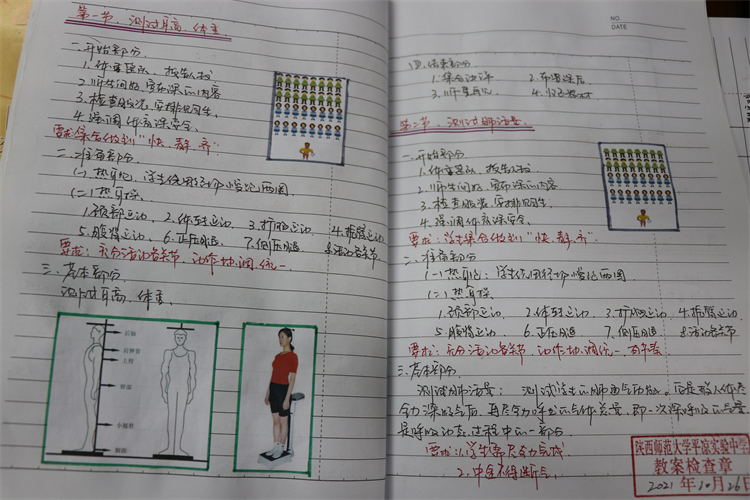 第一节、测试身高、体重
一、开始部分
1.体委整队、报告人数
2.师生问好，宣布课的内容
3.检查服装，安排见习生。
4.强调体育课安全。
要求：集合做到"快、静、齐"
二、准备部分
(一)热身跑、学生绕田径场慢跑两圈
(二)热身操
1.颈部运动、2.体转运动、3.扩胸运动、4.振臂运动
5.腹背运动、6.正压腿、7.侧压腿 8.活动各关节
要求：充分活动各关节、动作协调统一。
三、基本部分
测试身高、体重、
后脑
肩胛骨
上背
臀部
小腿肚
脚跟
NO.
DATE
四、结束部分
1.集合讲评 2.布置课后
3.师生再见 4.归还器材
第二节、测试肺活量。
一、开始部分
1.体委整队、报告人数
2.师生问好，宣布课的内容
3.检查服装，安排见习生。
4.强调体育课安全。
要求：学生集合做到"快、静、齐"。
二、准备部分
(一)热身跑：学生绕田径场慢跑两圈
(二)热身操
1.颈部运动、2.体转运动、3.扩胸运动、4.振臂运动、
5.腹背运动、6.正压腿 7.侧压腿 8.活动各关节
要求：充分活动各关节、动作协调统一、
三、基本部分
测试肺活量：测试学生的肺通气功能。
全力深吸气后，再尽全力呼出的气体总量，即一次深呼吸的气量
是呼吸动态过程中的一部分
要求：1.学生要尽全力完成
2.中途不得断气。
陕西师范大学平凉实验中学
教案检查章
2021年10月26日